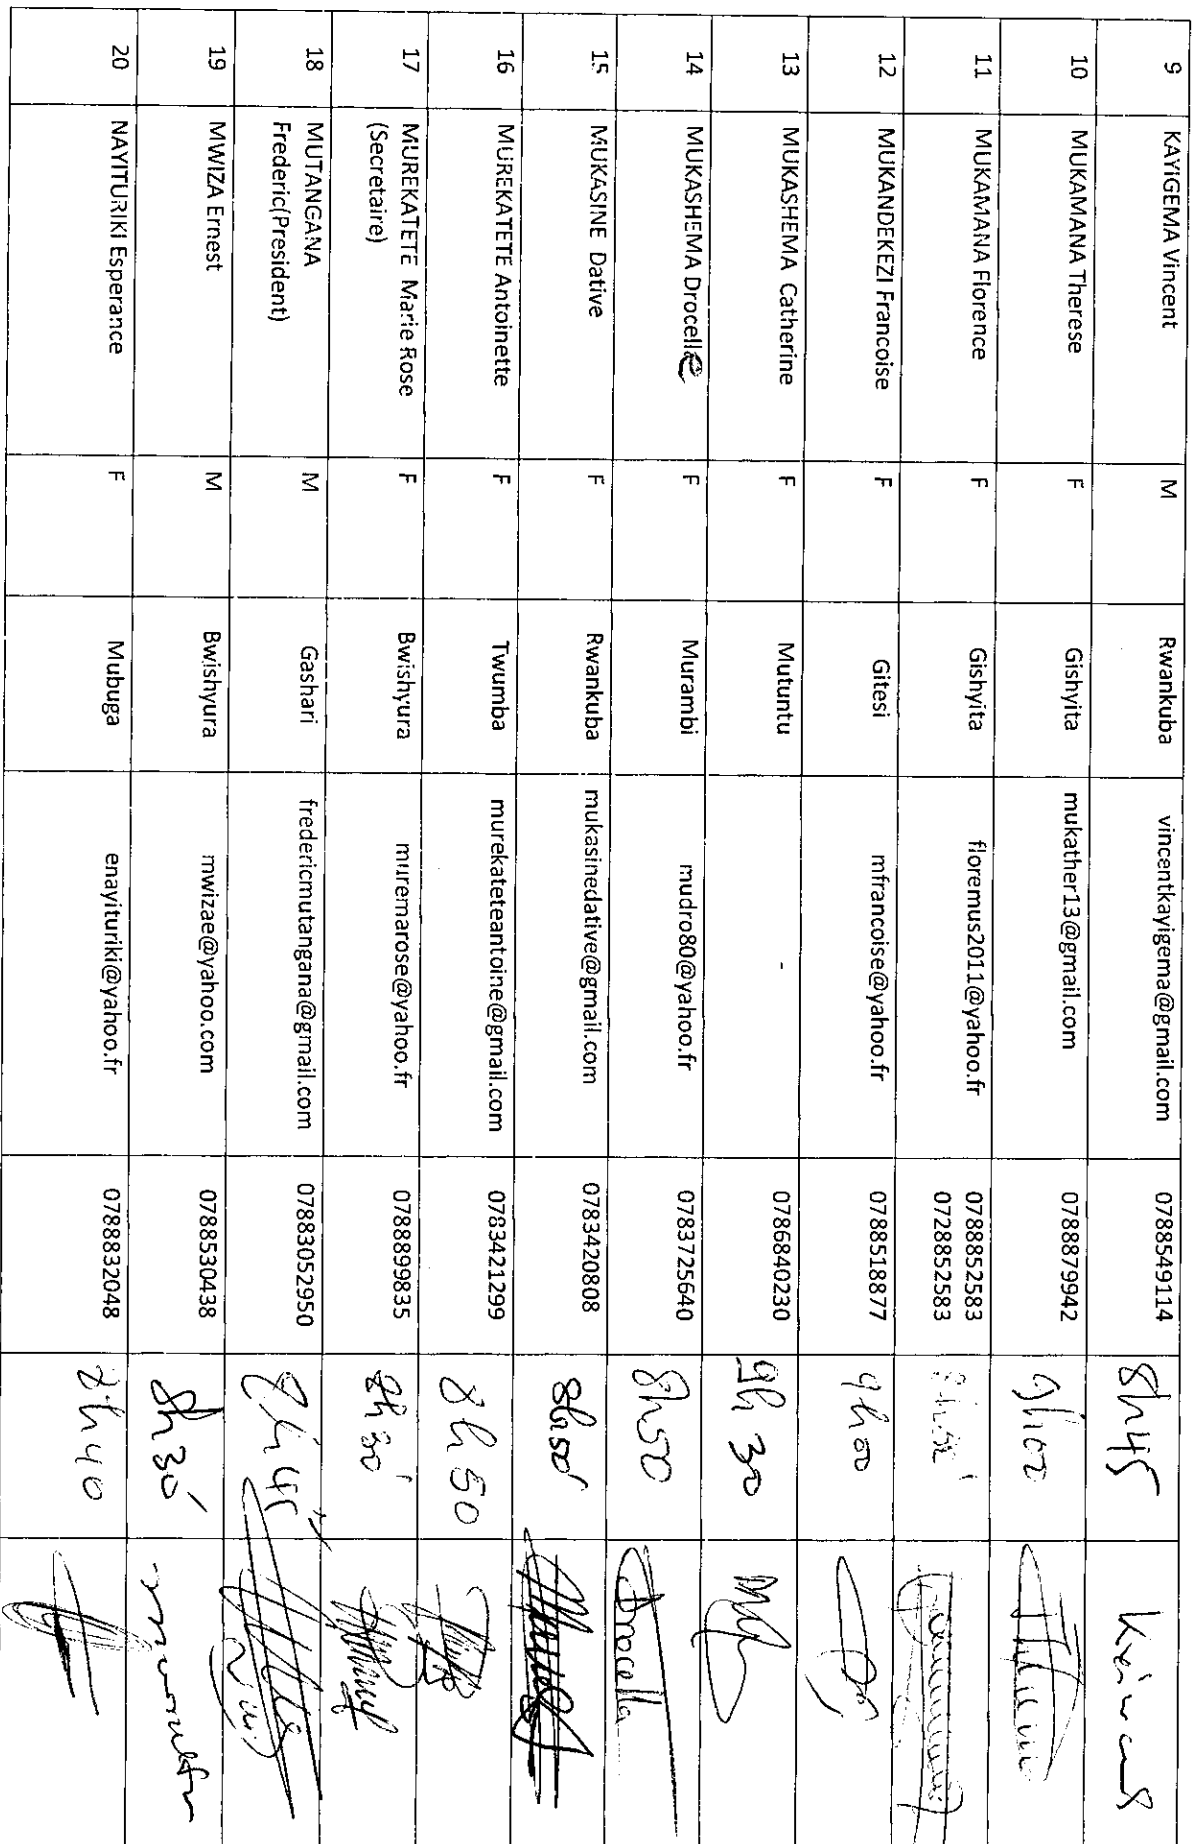 9 KAYIGEMA Vincent M Rwankuba vincentkayigema@gmail.com 0788549114 8h45
10 MUKAMANA Therese F Gishyita mukather13@gmail.com 0788879942 9h00
11 MUKAMANA Florence F Gishyita floremus2011@yahoo.fr 0788852583
0728852583
12 MUKANDEKEZI Francoise F Gitesi mfrancoise@yahoo.fr 0788518877 9h00
13 MUKASHEMA Catherine F Mutuntu - 0786840230 9h30
14 MUKASHEMA Drocelle F Murambi mudro80@yahoo.fr 0783725640 8h50 Drocella
15 MUKASINE Dative F Rwankuba mukasinedative@gmail.com 0783420808 8h50'
16 MUREKATETE Antoinette F Twumba murekateteantoine@gmail.com 0783421299 8h50
17 MUREKATETE Marie Rose F Bwishyura muremarose@yahoo.fr 0788899835 8h30'
(Secretaire)
18 MUTANGANA M Gashari fredericmutangana@gmail.com 07883052950 8h45
Frederic(President)
19 MWIZA Ernest M Bwishyura mwizae@yahoo.com 0788530438 8h30'
20 NAYITURIKI Esperance F Mubuga enayituriki@yahoo.fr 0788832048 8h40